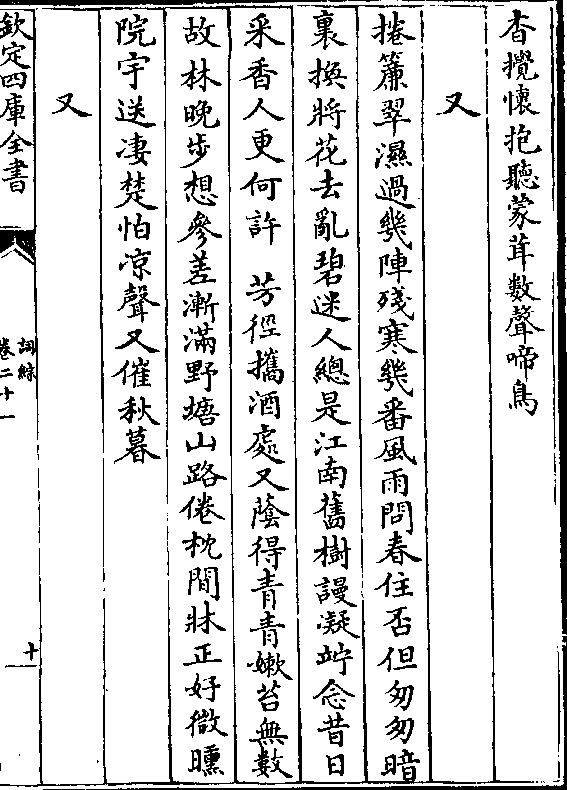 杳攪懷抱聽蒙茸數聲啼鳥
又
捲簾翠濕過幾陣殘寒幾番風雨問春住否但匆匆暗
裏換將花去亂碧迷人總是江南舊樹謾凝竚念昔日
采香人更何許　芳徑攜酒處又蔭得青青嫩苔無數
故林晚步想參差漸滿野塘山路倦枕閒牀正好微曛
院宇送凄楚怕凉聲又催秋暮
又
欽定四庫全書
詞綜
卷二十一
十